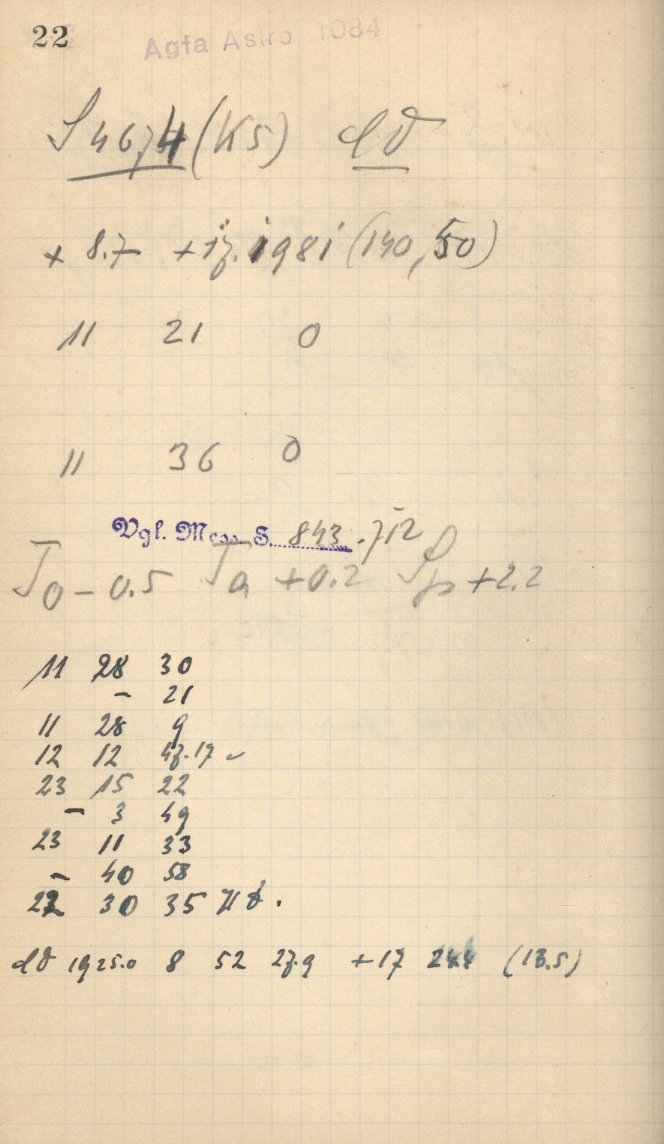 22 Agfa Astro 1084
S 4674 (K5)
+ 8.7 + 17. 1981 (140, 50)
11 21 0
11 36 0
Vgl. Mess. S. 843.712
T₀ - 0.5 Ta + 0.2 + 2.2
11 28 30
- 21
11 28 9
12 12 47.17 ✓
23 15 22
- 3 49
23 11 33
- 40 58
22 30 35
1925.0 8 52 27.9 +17 24.4 (13.5)